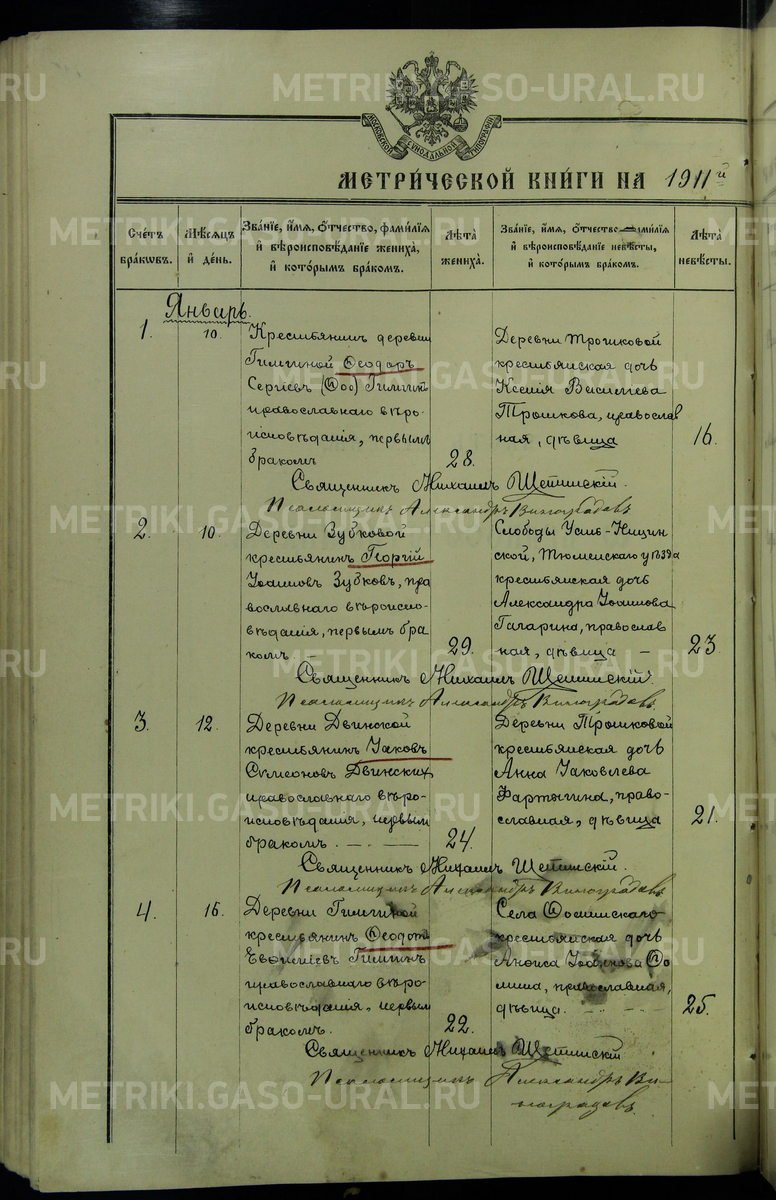 METRIKI.GASO-URAL.RU
МОСКОВСКОЙ СѴНОДАЛЬНОЙ ТИПОГРАФІИ
МЕТРИЧЕСКОЙ КНИГИ НА 1911й
Счетъ браковъ.
Мѣсяцъ и день.
Званіе, имя, отчество, фамилія
и вѣроисповѣданіе жениха,
и которымъ бракомъ.
Лѣта жениха.
Званіе, имя, отчество, фамилія
и вѣроисповѣданіе невѣсты,
и которымъ бракомъ.
Лѣта невѣсты.
Январь.
1. 10.
Крестьянинъ деревни
Ѳеодоръ
Сергіевъ (Ѳео)
православнаго вѣро-
исповѣданія, первымъ
бракомъ
28.
Деревни Трошковой
крестьянская дочь
Ксенія Василіева
Трошкова, православ
ная, дѣвица
16.
Священникъ Михаилъ
Псаломщикъ Александръ Виноградовъ
2. 10.
Деревни Зубковой
крестьянинъ Георгій
Іоанновъ Зубковъ, пра
вославнаго вѣроиспо-
вѣданія, первымъ бра
комъ –
29.
Слободы Усть-Ницин
ской, Тюменскаго уѣзда
крестьянская дочь
Александра Іоаннова
Гагарина, православ
ная, дѣвица –
23
Священникъ Михаилъ
Псаломщикъ Александръ Виноградовъ
3. 12.
Деревни Двинской
крестьянинъ Іаковъ
Симеоновъ Двинскихъ
православнаго вѣро-
исповѣданія, первым
бракомъ.
24.
Деревни Трошковой
крестьянская дочь
Анна Іаковлева
Фартыгина, право-
славная, дѣвица
21.
Священникъ Михаилъ
Псаломщикъ Александръ Виноградовъ
4. 16.
Деревни
крестьянинъ Ѳеодотъ
Евѳиміевъ
православнаго вѣро-
исповѣданія, первым
бракомъ.
22.
Села
крестьянская дочь
Анѳиса Іоаннова Ѳо
мина, православная,
дѣвица.
25.
Священникъ Михаилъ
Псаломщикъ Александръ Ви-
ноградовъ